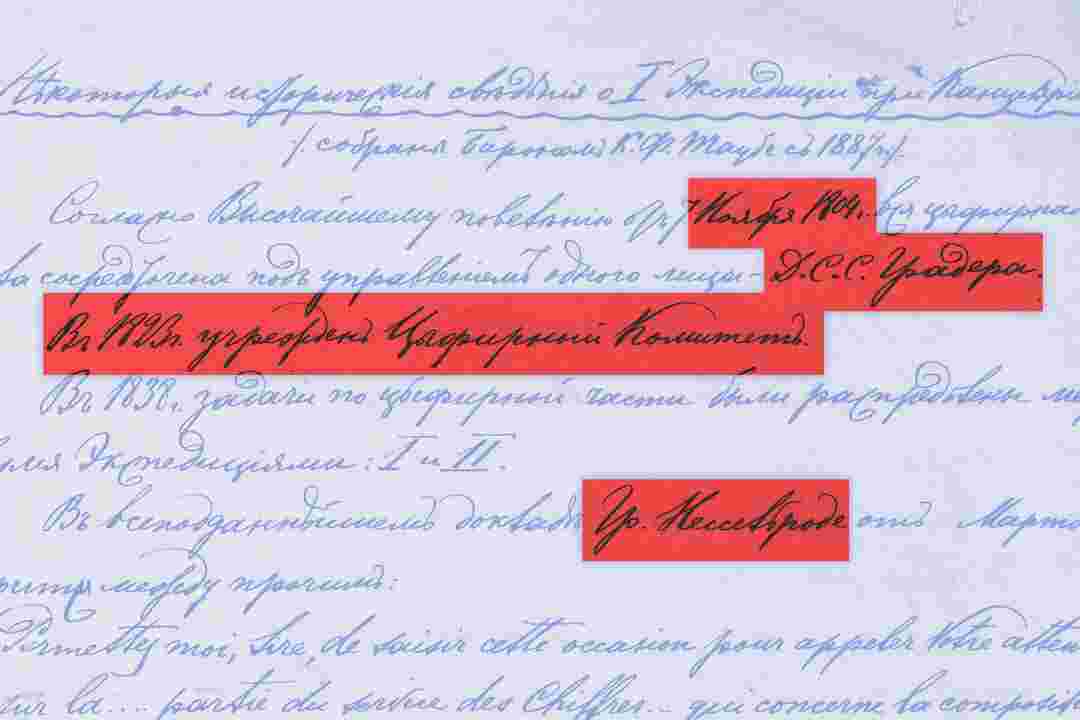 Нѣкоторыя историческія свѣдѣнія о I Экспедиціи при Канцеляріи
/ собраны Барономъ К. Ф. Таубе съ 1887 г. /.
Согласно Высочайшему повелѣнію отъ 7 Ноября 1804 г. вся цыфирная
ва сосредоточена подъ управленіемъ одного лица - Д. С. С.Градера.
Въ 1823 г. учрежденъ Цыфирный Комитетъ.
Въ 1838 г. задачи по цыфирной части были распредѣлены
Экспедиціями: I и II.
Въ всеподданнѣйшемъ докладѣ Гр. Нессельроде отъ Марта
между прочимъ:
Permettez moi, Sire, de saisir cette occasion pour appeler Votre atten
sur la.... partie du service des Chiffres... qui concerne la composi